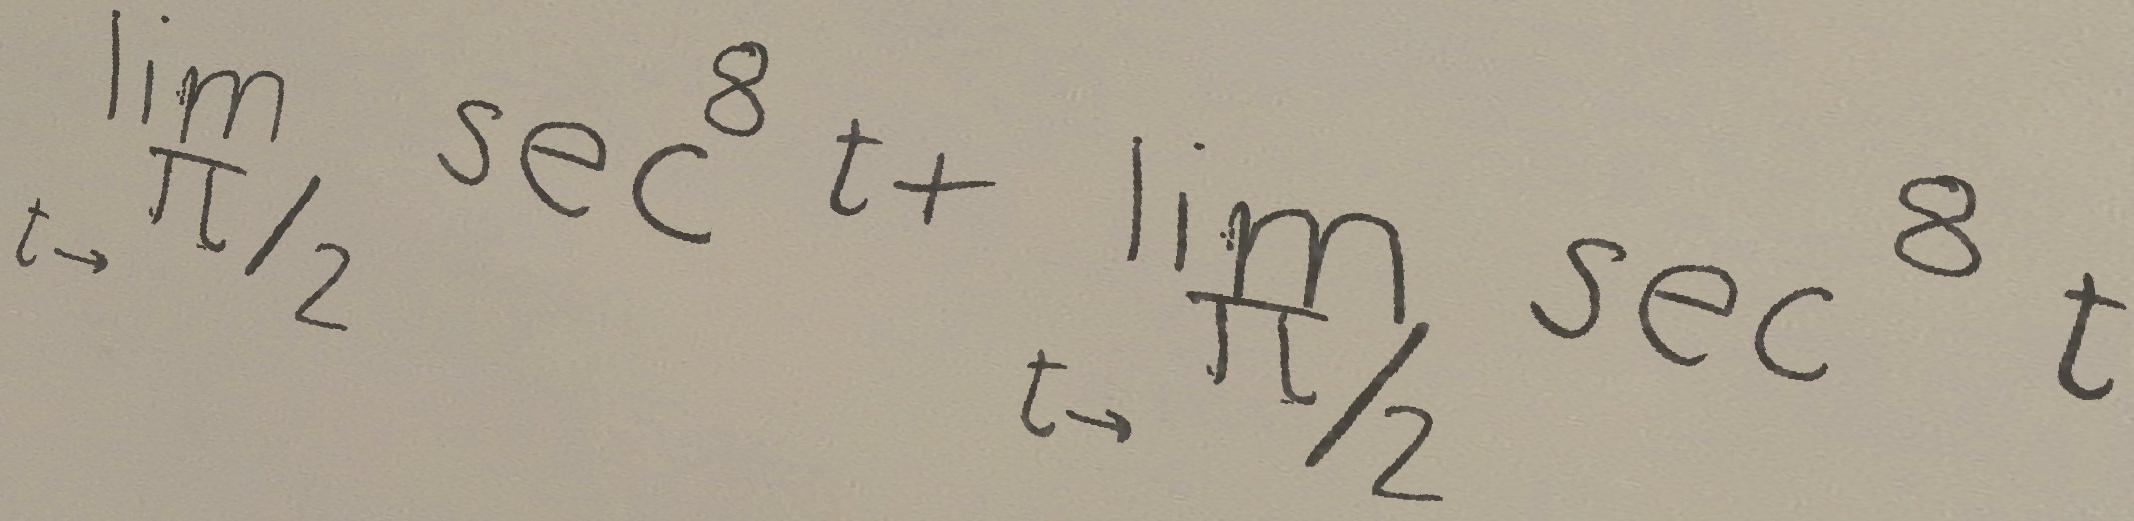 \lim_{t \to \pi/2} \sec^8 t + \lim_{t \to \pi/2} \sec^8 t